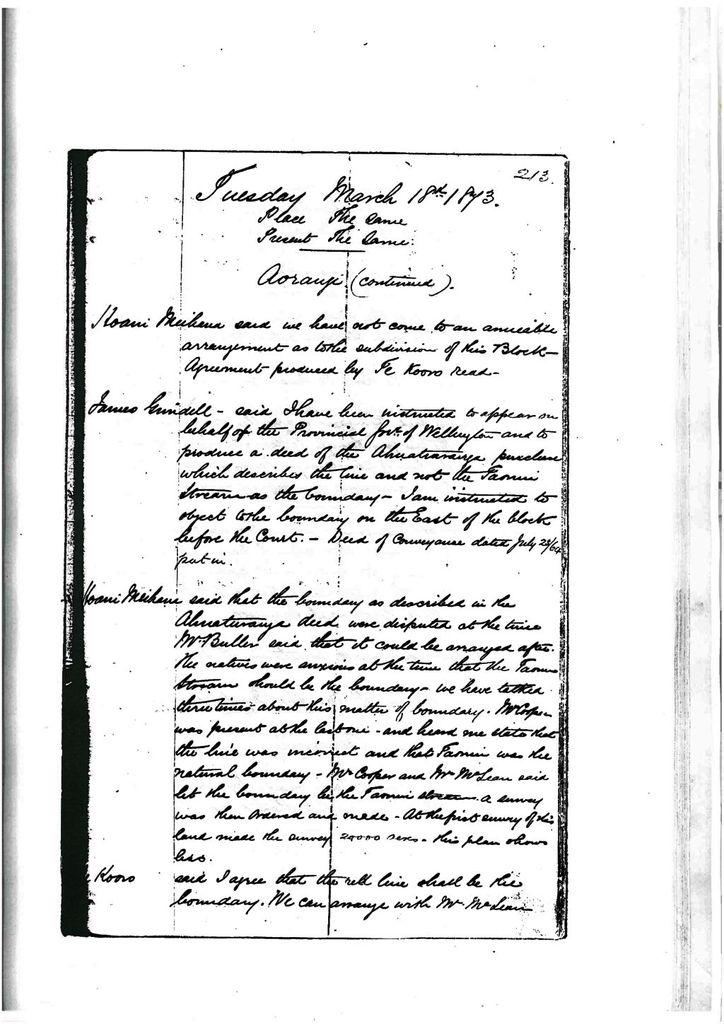 213.
Tuesday March 18th 1873.
Place The Same
Present The Same.
Aorangi (continued).
Hoani Meihana said we have not come to an amicable
arrangement as to the subdivision of this Block—
Agreement produced by Te Kooro read—
James Grindell - said I have been instructed to appear on
behalf of the Provincial Govt. of Wellington and to
produce a deed of the Ahuaturanga purchase
which describes the line and not the Taonui
Stream as the boundary— I am instructed to
object to the boundary on the East of the block
before the Court. — Deed of Conveyance dated July 23/64
put in.
Hoani Meihana said that the boundary as described in the
Ahuaturanga deed were disputed at the time
Mr Buller said that it could be arranged after.
The natives were anxious at the time that the Taonui
Stream should be the boundary— we have talked
three times about this matter of boundary. Mr Cooper
was present at the last one - and heard me state that
the line was incorrect and that Taonui was the
natural boundary— Mr Cooper and Mr McLean said
let the boundary be the Taonui stream a survey
was then ordered and made - At the first survey of this
land made the survey 20000 acres - this plan shows
less.
Kooro said I agree that the red line shall be the
boundary. We can arrange with Mr McLean